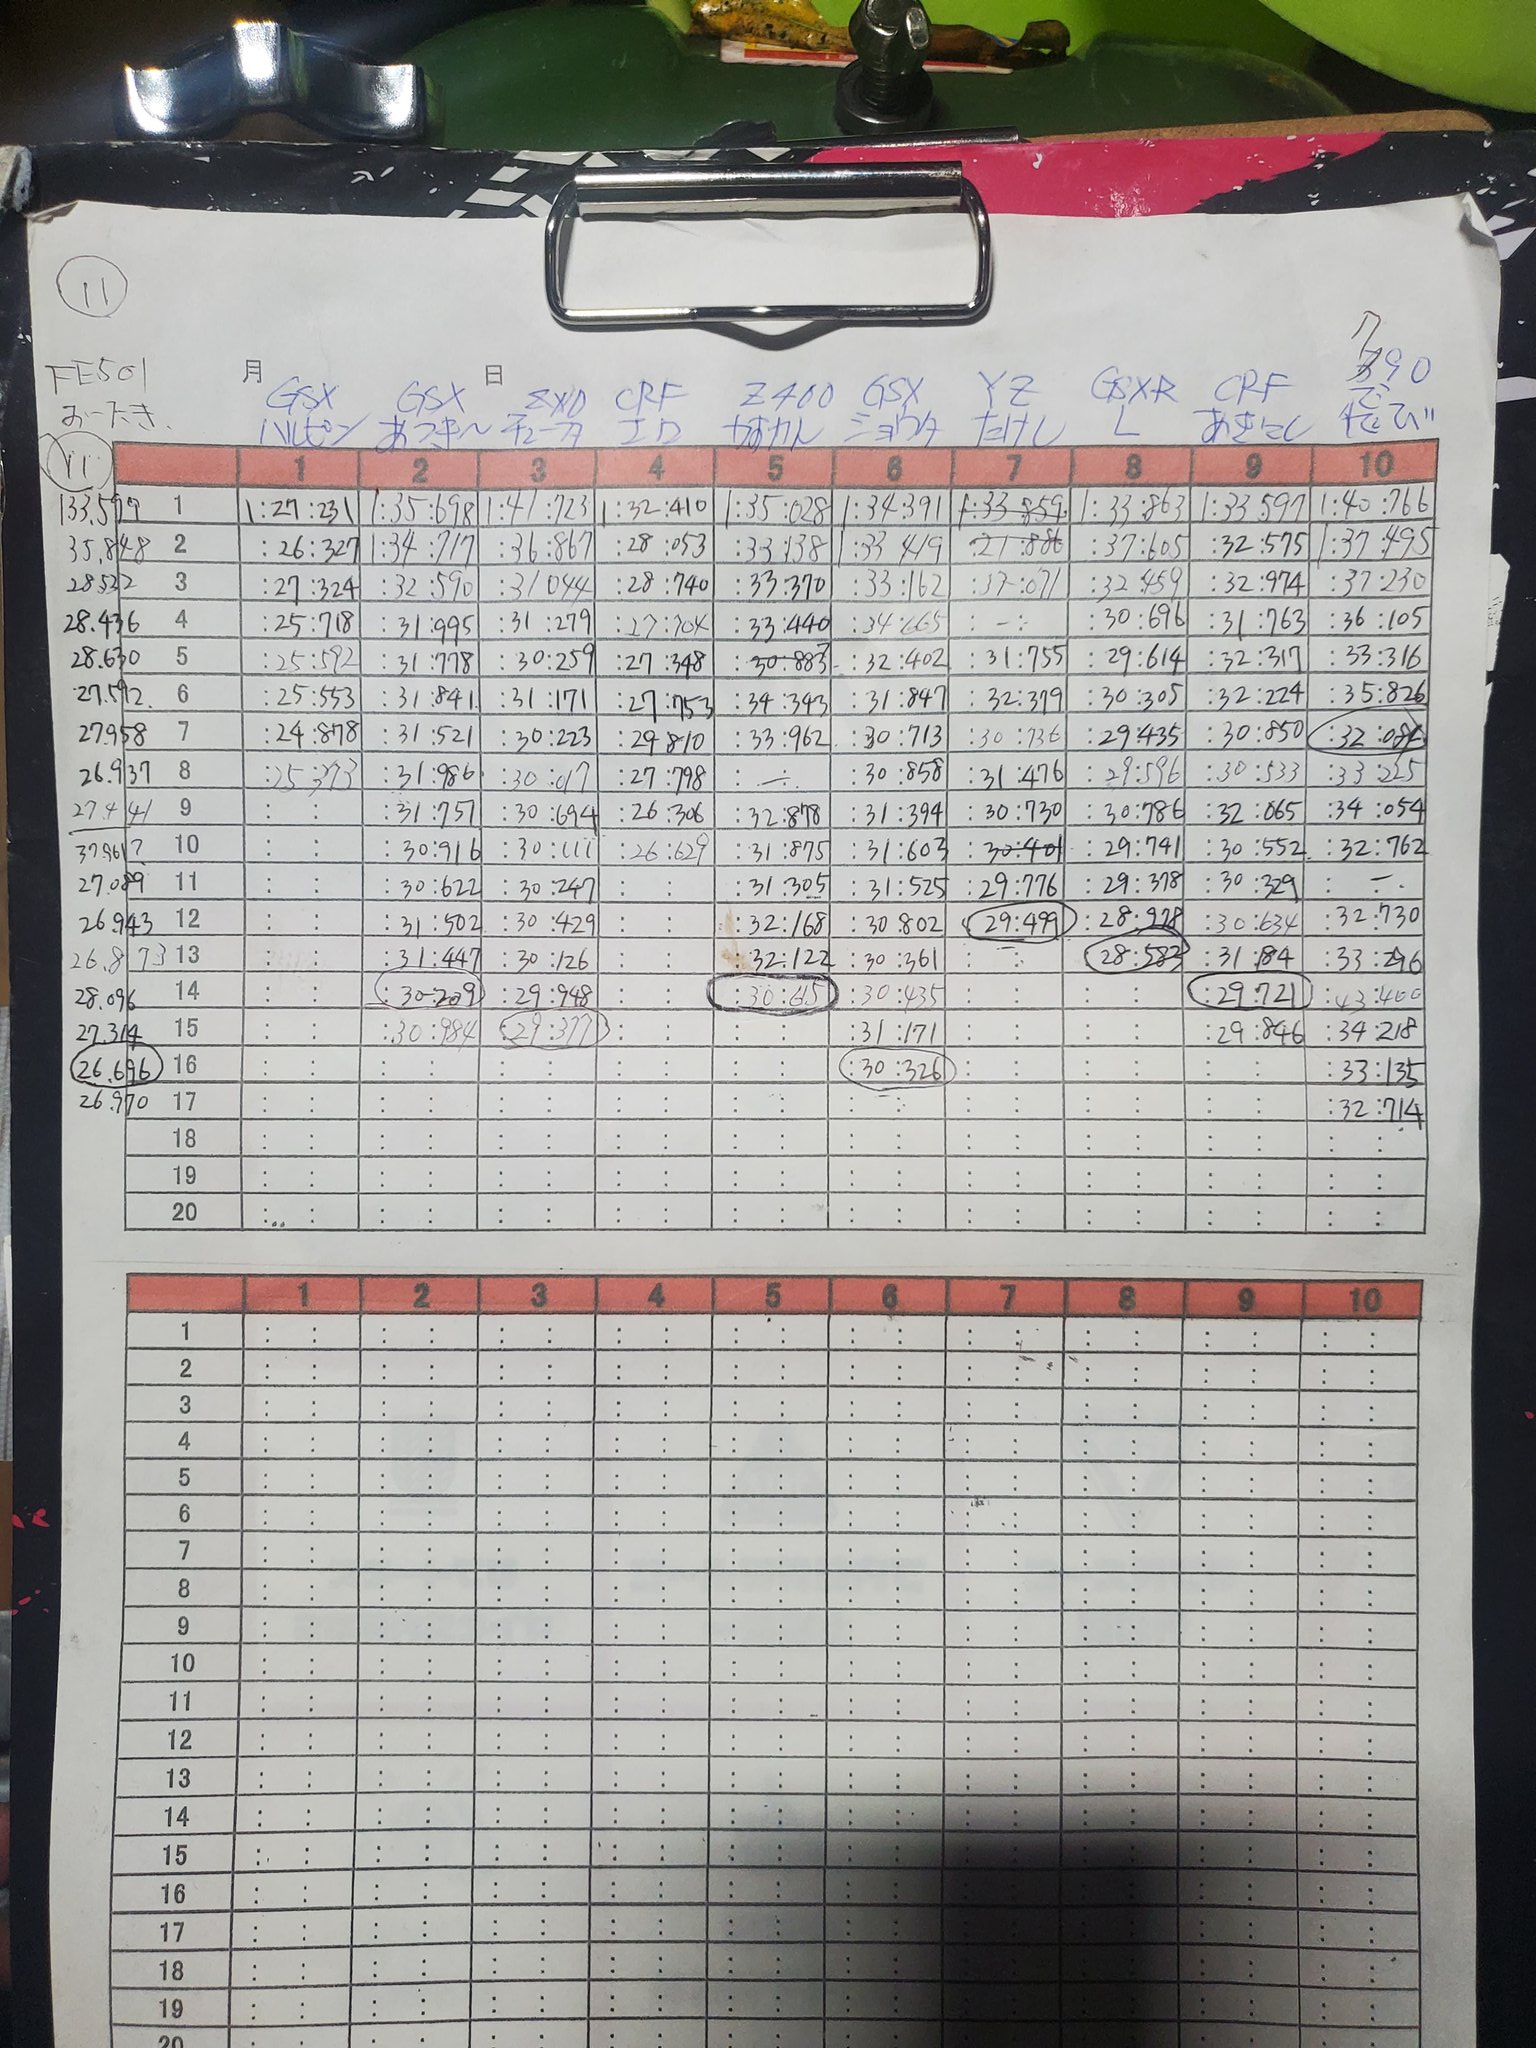 11
FE501 月 GSX GSX 日 CRF Z400 GSX YZ GSXR CRF 790
おーたき ハルピン エロ ショウタ たけし L
11 1 2 3 4 5 6 7 8 9 10
133.599 1 1:27:231 1:35:698 1:41:723 1:32:410 1:35:028 1:34:391 1:33:859 1:33:863 1:33:597 1:40:766
35.848 2 :26:327 1:34:717 :36:867 :28:053 :33:138 1:33:419 :21:886 :37:605 :32:575 1:37:495
3 :27:324 :32:590 :31:044 :28:740 :33:370 :33:162 :37:071 :32:459 :32:974 :37:230
28.436 4 :25:718 :31:995 :31:279 :27:704 :33:440 :34:665 :-: :30:696 :31:763 :36:105
28.630 5 :25:592 :31:778 :30:259 :27:348 :30:883 :32:402 :31:755 :29:614 :32:317 :33:316
27.592 6 :25:553 :31:841 :31:171 :27:753 :34:343 :31:847 :32:379 :30:305 :32:224 :35:826
27.958 7 :24:878 :31:521 :30:223 :29:810 :33:962 :30:713 :30:736 :29:435 :30:850
26.937 8 :25:373 :31:986 :30:017 :27:798 :-: :30:858 :31:476 :29:596 :30:533 :33:225
27.441 9 : : :31:757 :30:694 :26:306 :32:878 :31:394 :30:730 :30:786 :32:065 :34:054
10 : : :30:916 :30:111 :26:629 :31:875 :31:603 :30:401 :29:741 :30:552 :32:762
27.089 11 : : :30:622 :30:247 : : :31:305 :31:525 :29:776 :29:378 :30:329 :-:
26.943 12 : : :31:502 :30:429 : : :32:168 :30:802 :29:499 :28:978 :30:634 :32:730
26.873 13 : : :31:447 :30:126 : : :32:122 :30:361 : : :28:583 :31:84 :33:296
28.096 14 : : :30:209 :29:948 : : :30:615 :30:435 : : : : :29:721 :43:400
27.314 15 : : :30:984 :29:377 : : : : :31:171 : : : : :29:846 :34:218
26.696 16 : : : : : : : : : : :30:326 : : : : : : :33:135
26.970 17 : : : : : : : : : : : : : : : : : : :32:714
18 : : : : : : : : : : : : : : : : : : : :
19 : : : : : : : : : : : : : : : : : : : :
20 : : : : : : : : : : : : : : : : : : : :
1 2 3 4 5 6 7 8 9 10
1 : : : : : : : : : : : : : : : : : : : :
2 : : : : : : : : : : : : : : : : : : : :
3 : : : : : : : : : : : : : : : : : : : :
4 : : : : : : : : : : : : : : : : : : : :
5 : : : : : : : : : : : : : : : : : : : :
6 : : : : : : : : : : : : : : : : : : : :
7 : : : : : : : : : : : : : : : : : : : :
8 : : : : : : : : : : : : : : : : : : : :
9 : : : : : : : : : : : : : : : : : : : :
10 : : : : : : : : : : : : : : : : : : : :
11 : : : : : : : : : : : : : : : : : : : :
12 : : : : : : : : : : : : : : : : : : : :
13 : : : : : : : : : : : : : : : : : : : :
14 : : : : : : : : : : : : : : : : : : : :
15 : : : : : : : : : : : : : : : : : : : :
16 : : : : : : : : : : : : : : : : : : : :
17 : : : : : : : : : : : : : : : : : : : :
18 : : : : : : : : : : : : : : : : : : : :
19 : : : : : : : : : : : : : : : : : : : :
20